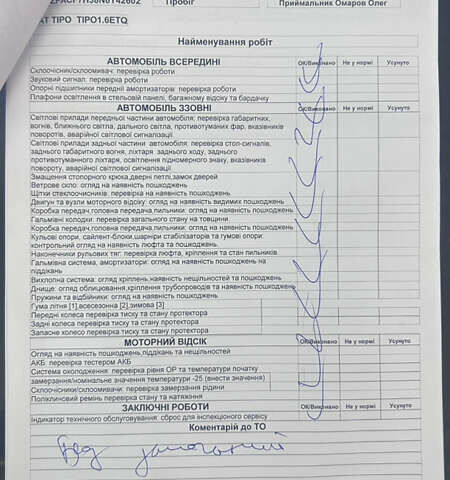 Пробіг
Приймальник Омаров Олег
AT TIPO TIPO1.6ETQ
Найменування робіт
АВТОМОБІЛЬ ВСЕРЕДИНІ ОК/Виконано Не у нормі Усунуто
Склоочисник/склоомивач: перевірка роботи
Звуковий сигнал: перевірка роботи
Опорні підшипники передні амортизаторів: перевірка роботи
Плафони освітлення в стельовій панелі, багажному відсіку та бардачку
АВТОМОБІЛЬ ЗЗОВНІ ОК/Виконано Не у нормі Усунуто
Світлові прилади передньої частини автомобіля: перевірка габаритних,
вогнів, ближнього світла, дального світла, противотуманих фар, вказівників
поворотів, аварійної світлової сигналізації.
Світлові прилади задньої частини автомобіля: перевірка стоп-сигналів,
заднього габаритного вогня, ліхтаря заднього ходу, заднього
противотуманного ліхтаря, освітлення підномерного знаку, вказівників
повороту, аварійної світлової сигналізації
Змащення стопорного крюка,дверні петлі,замок дверей
Ветрове скло: огляд на наявність пошкоджень
Щітки стеклоочисників: перевірка на наявність пошкоджень
Двигун та вузли моторного відсіку: огляд на наявність видимих пошкоджень
Коробка передач,головна передача,пильники: огляд на наявність пошкоджень
Гальмівні колодки: перевірка загального стану на товщини
Коробка передач,головна передача,пильники: огляд на наявність пошкоджень
Кульові опори, сайлент-блоки,шарніри стабілізаторів та гумові опори:
контрольний огляд на наявність люфта та пошкоджень
Наконечники рульових тяг: перевірка люфта, кріплення та стан пильників
Гальмівна система, амортизатори: огляд на наявність пошкоджень на
піддікань
Вихлопна система: огляд кріплень,наявність нещільностей та пошкоджень
Днище: огляд облицювання,кріплення трубопроводів та наявність пошкоджень
Пружини та відбійники: огляд на наявність пошкоджень
Гума літна [1],всесезонна [2],зимова [3]
Передні колеса перевірка тиску та стану протектора
Задні колеса перевірка тиску та стану протектора
Запасне колесо перевірка тиску та стану протектора
МОТОРНИЙ ВІДСІК ОК/Виконано Не у нормі Усунуто
Огляд на наявність пошкоджень,піддікань та нещільностей
АКБ: перевірка тестером АКБ
Система охолодження: перевірка рівня ОР та температури початку
замерзання/номінальне значення температури -25 (внести значення)
Склоочисники/склоомивачи: перевірка замерзання рідини
Поліклиновий ремінь перевірка стану та натяження
ЗАКЛЮЧНІ РОБОТИ ОК/Виконано Не у нормі Усунуто
Індикатор технічного обслуговування: сброс для інспекціного сервісу
Коментарій до ТО
Без